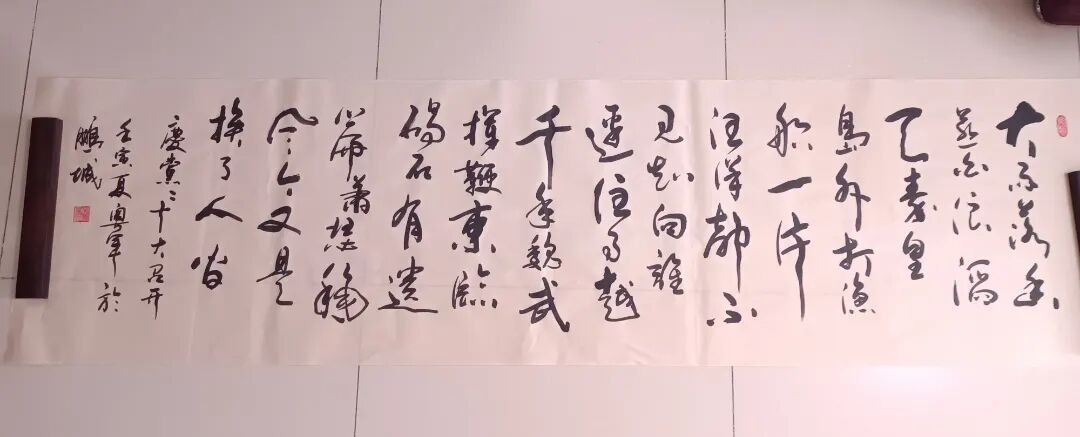 大雨落幽
燕白浪滔
天秦皇
島外打漁
船一片
汪洋都不
见知向誰
邊往事越
千年魏武
揮鞭東臨
碣石有遺
篇萧瑟秋
风今又是
换了人间
慶党二十大召开
壬寅夏於
鵬城